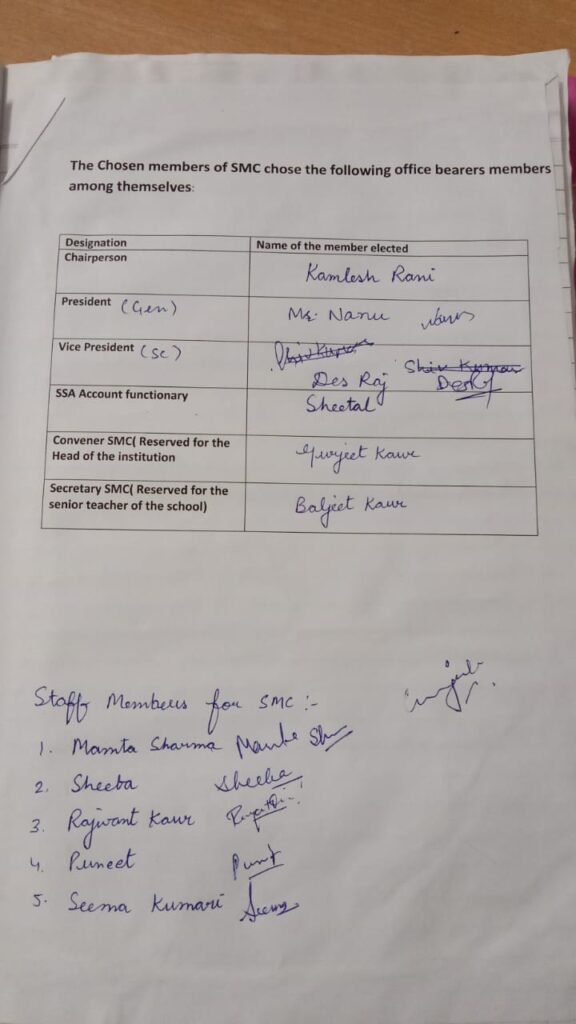 The Chosen members of SMC chose the following office bearers members
among themselves:
Designation Name of the member elected
Chairperson Kamlesh Rani
President (Gen) Mr. Nanu
Vice President (SC) Shiv Kumar
Des Raj Des Raj
SSA Account functionary Sheetal
Convener SMC( Reserved for the
Head of the institution Gurjeet Kaur
Secretary SMC( Reserved for the
senior teacher of the school) Baljeet Kaur
Staff Members for SMC :-
1. Mamta Sharma
2. Sheeba Sheeba
3. Rajwant Kaur
4. Puneet
5. Seema Kumari Seema